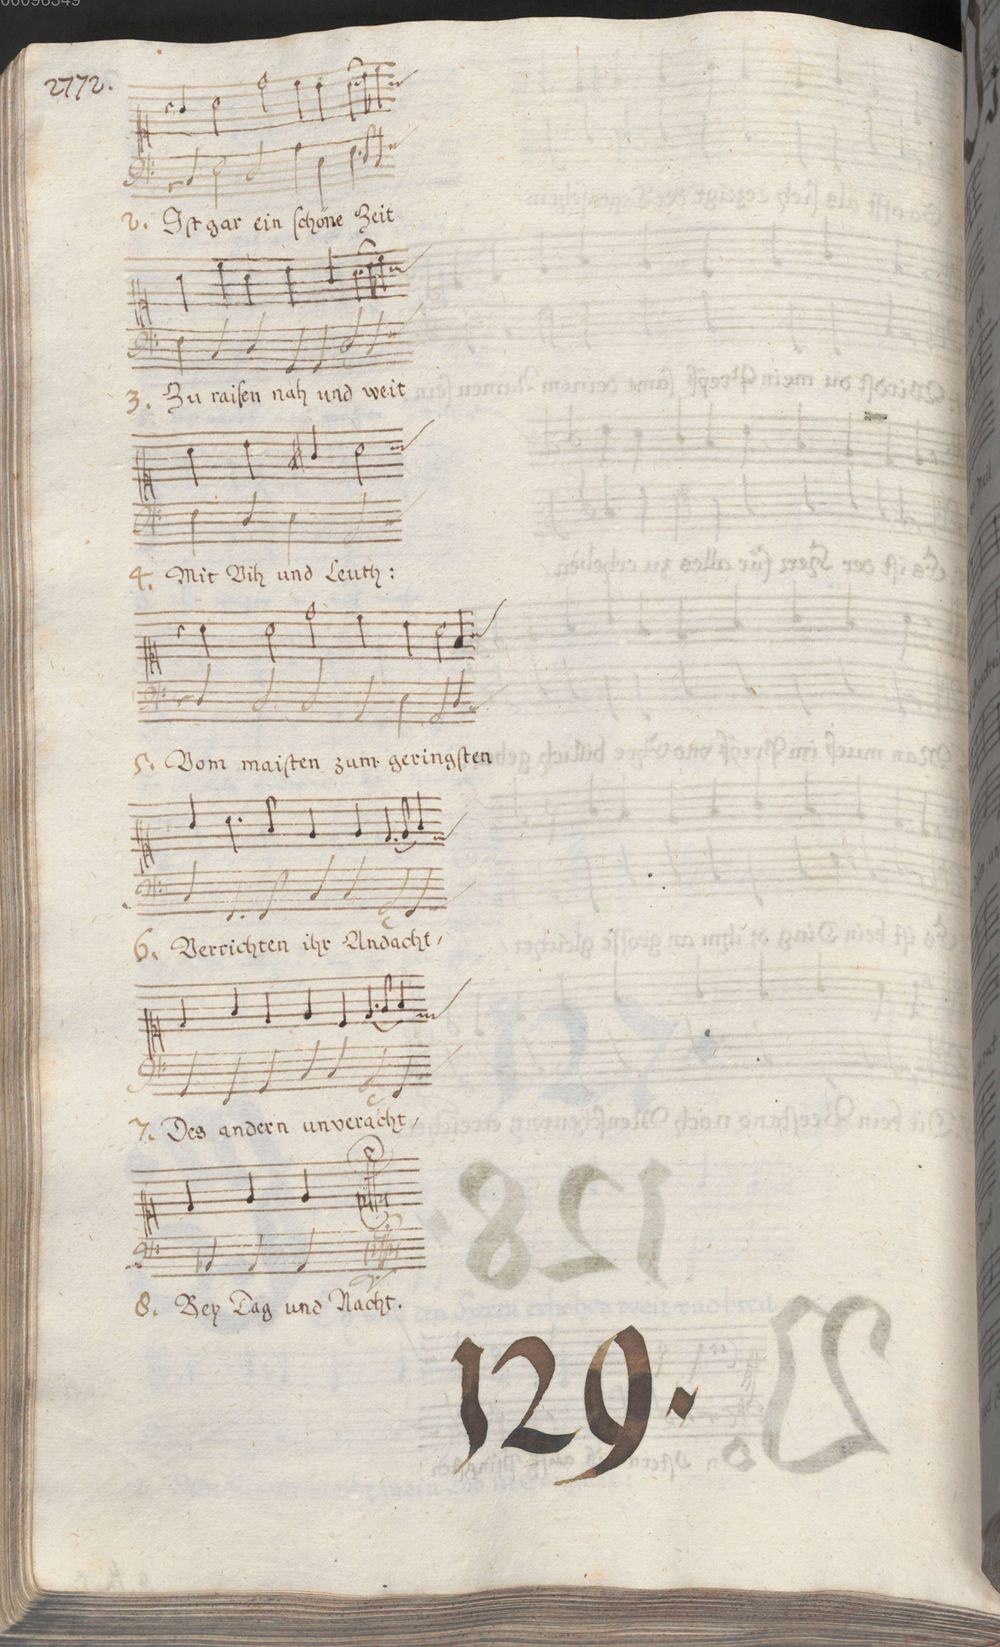 00096349
2772.
2. Ist gar ein schöne Zeit
3. Zu raisen nah und weit
4. Mit Vih und Leuth:
5. Vom maisten zum geringsten
6. Verrichten ihr Andacht,
7. Des andern unveracht,
8. Bey Tag und Nacht.
129.